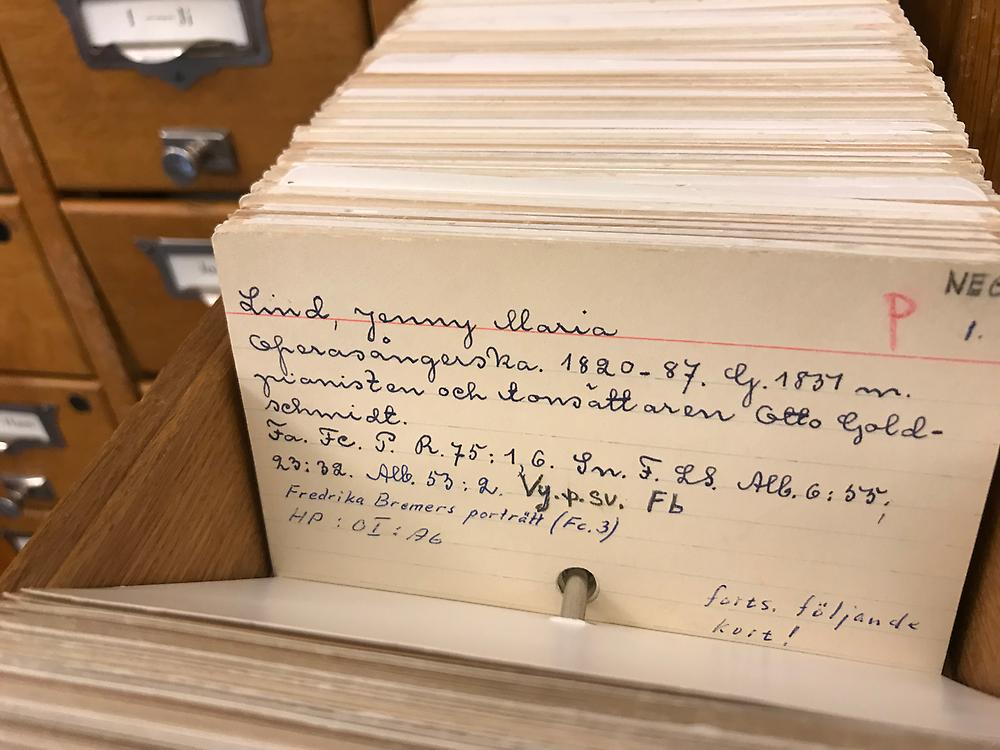 NEG
P
1.
Lind, Jenny Maria
Operasångerska. 1820-87. G. 1831 m.
pianisten och tonsättaren Otto Gold-
schmidt.
Fa. Fc. P. R. 75:1,6. Sn. F. LS. Alb. 6:55;
23:32. Alb. 53:2. Vy.p.sv. Fb
Fredrika Bremers porträtt (Fc.3)
HP: OI: A6
forts. följande
kort!